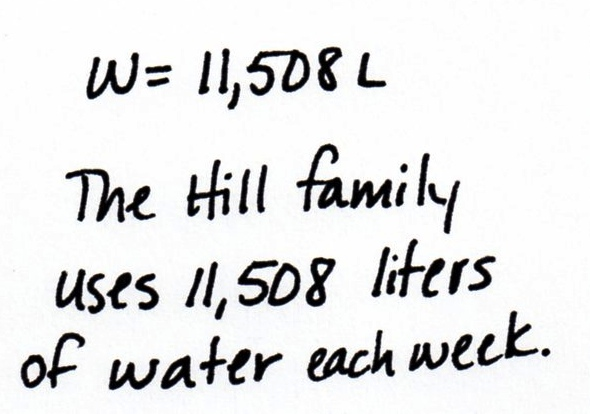 W= 11,508 L
The Hill family
uses 11,508 liters
of water each week.